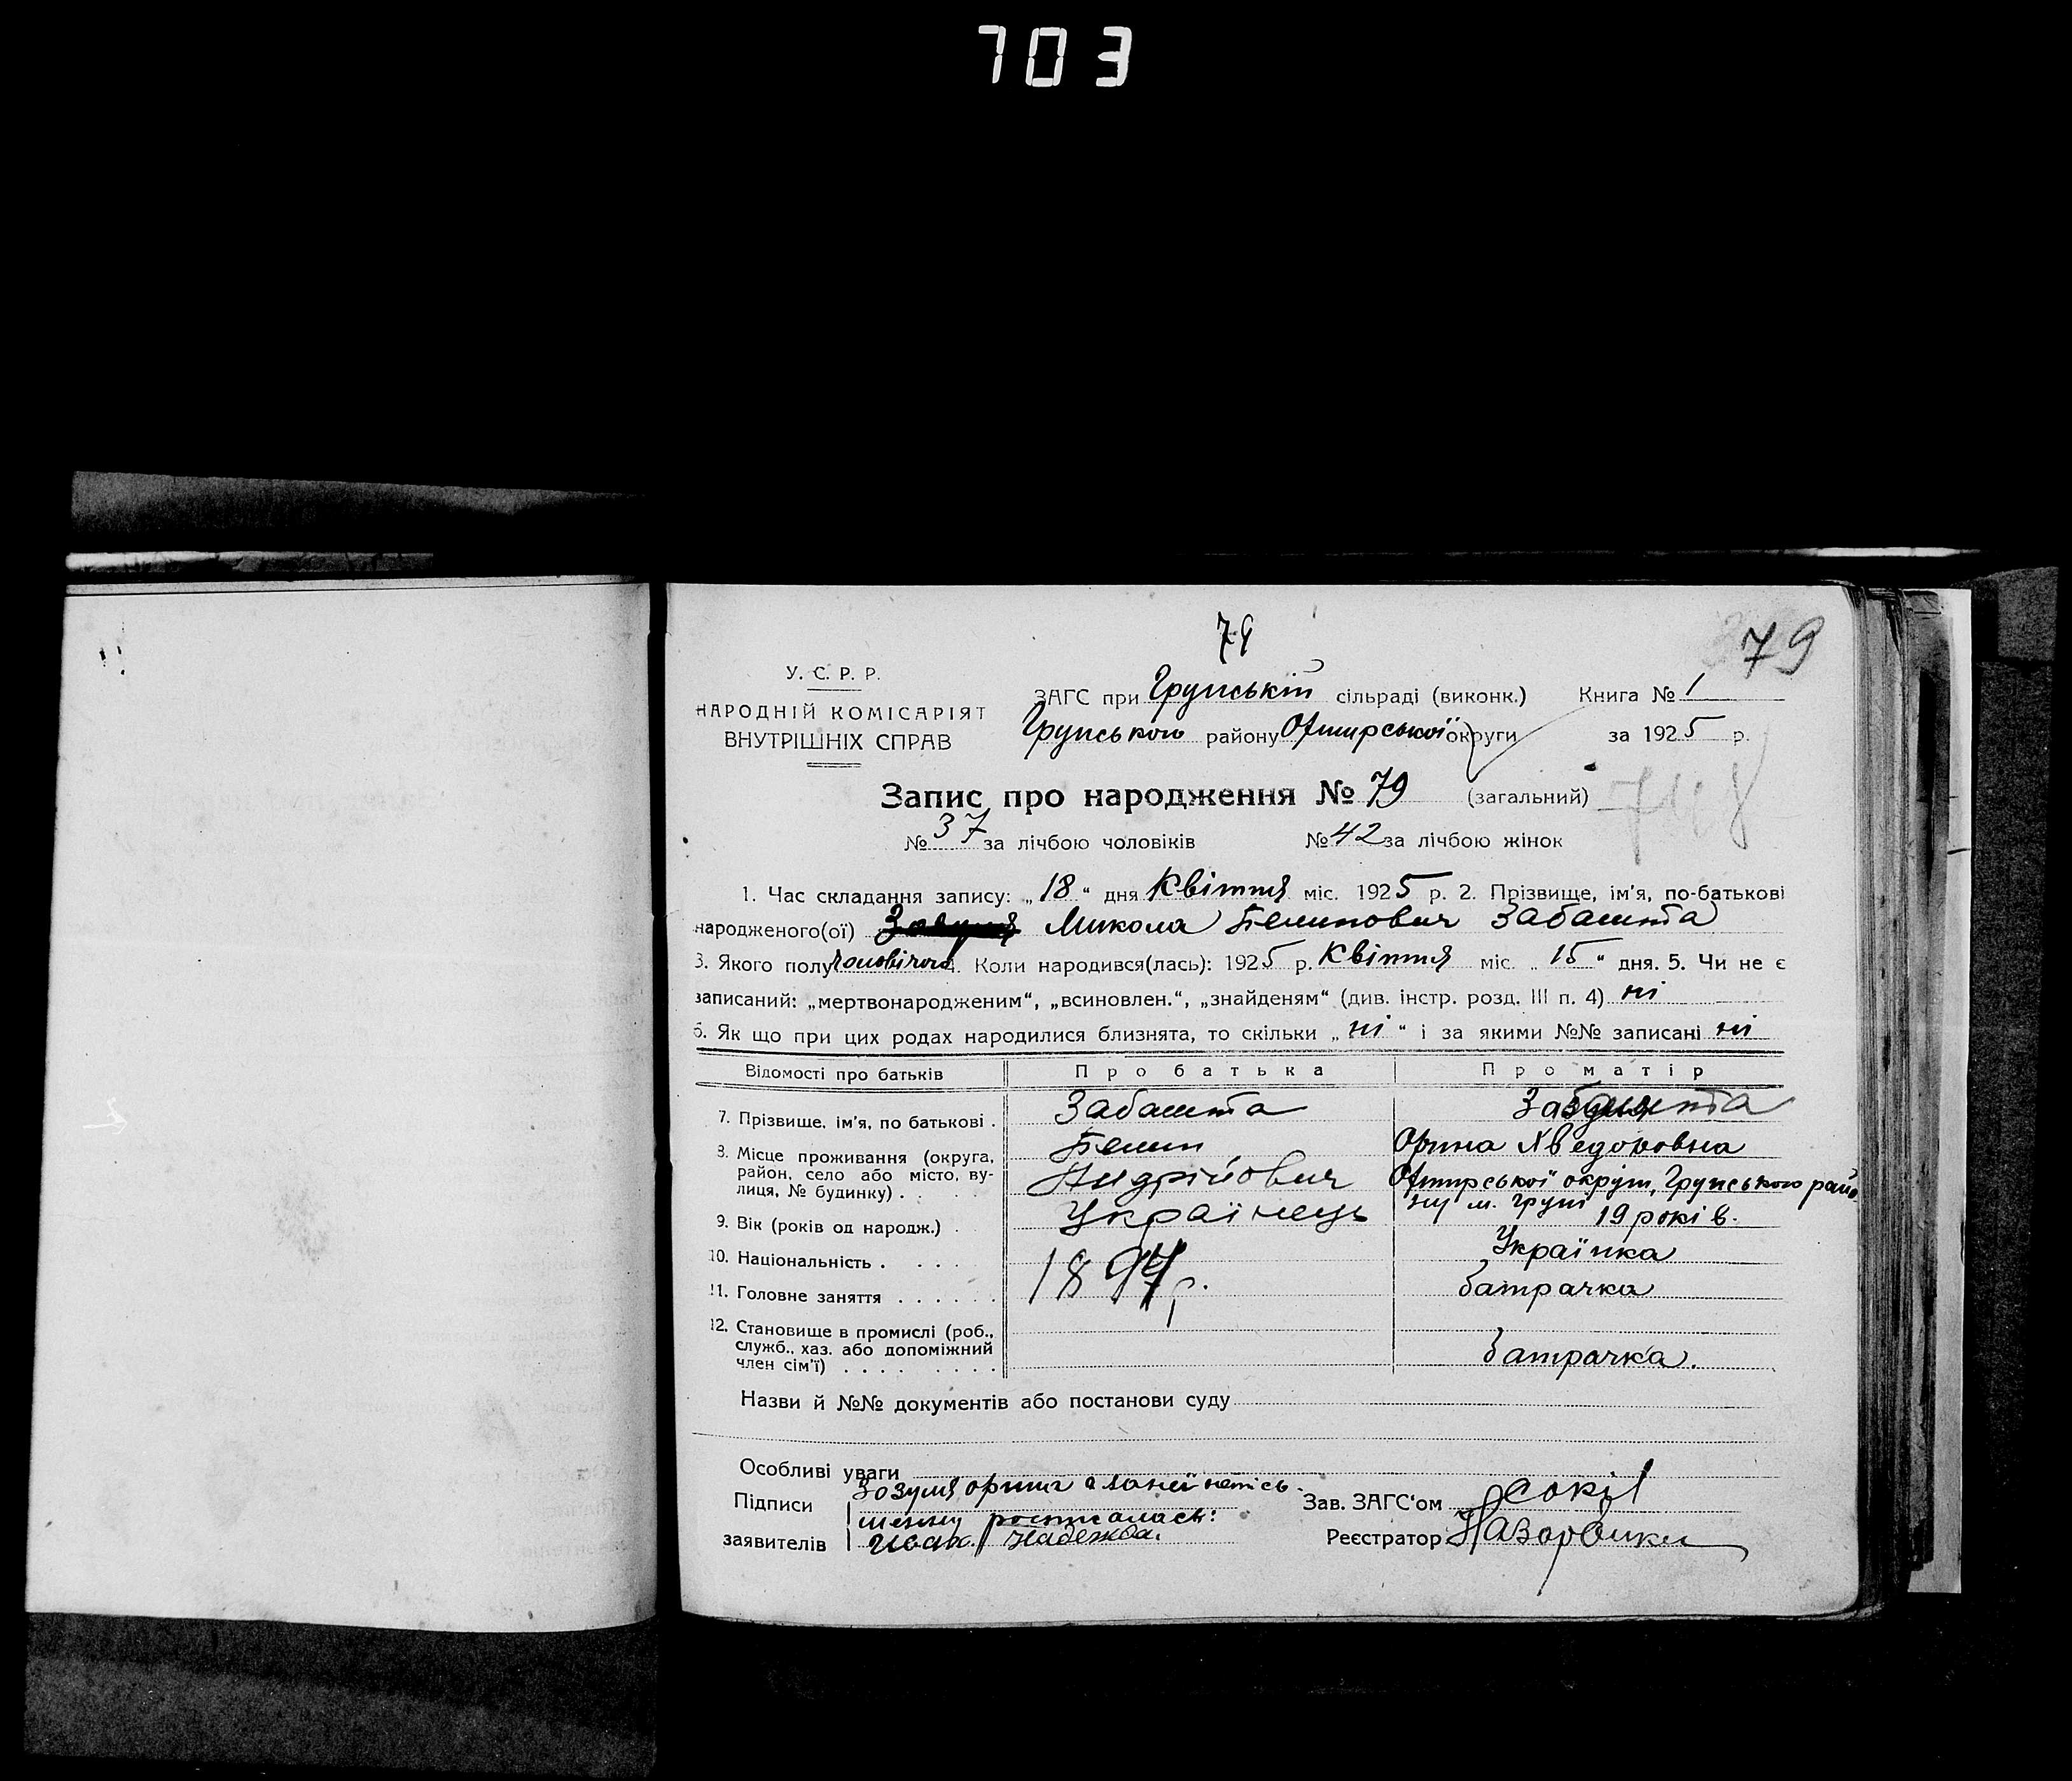 703
79
79
У. С. Р. Р.
НАРОДНІЙ КОМІСАРІЯТ
ВНУТРІШНІХ СПРАВ
ЗАГС при Грунській сільраді (виконк.) Книга № 1
Грунського району Охтирської округи за 1925 р.
Запис про народження № 79 (загальний)
748
№ 37 за лічбою чоловіків № 42 за лічбою жінок
1. Час складання запису: „18“ дня Квітня міс. 1925 р. 2. Прізвище, ім'я, по-батькові
народженого(ої) Микола Пилипович Забашта
3. Якого полу чоловічого 4. Коли народився(лась): 1925 р. Квітня міс. „15“ дня. 5. Чи не є
записаний: „мертвонародженим“, „всиновлен.“, „знайденям“ (див. інстр. розд. III п. 4) ні
6. Як що при цих родах народилися близнята, то скільки „ні“ і за якими №№ записані ні
Відомості про батьків Про батька Про матір
7. Прізвище, ім'я, по батькові . Забашта Забашта
Пилип Орина Хведоровна
8. Місце проживання (округа, район, село або місто, вулиця, № будинку) . . Андрійович Охтирської округи, Грунського району м. Грунь
9. Вік (років од народж.) . Українець 19 років.
10. Національність . . . . . 1894 р. Українка
11. Головне заняття . . . . . . батрачка
12. Становище в промислі (роб.,
служб., хаз. або допоміжний
член сім'ї) . . . . . . . . . батрачка.
Назви й №№ документів або постанови суду
Особливі уваги
Підписи Зозуля Орина а за неї непись-
менну росписалась:
заявителів Надежда.
Зав. ЗАГС'ом Сокіл
Реєстратор